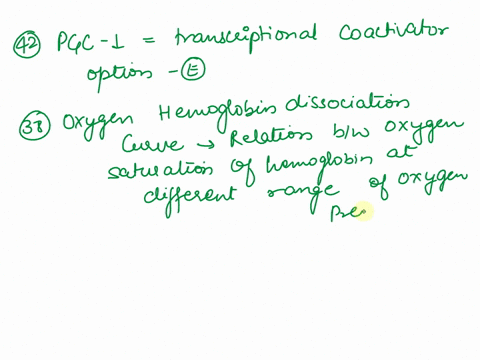 42 PGC-1 = transcriptional coactivator
option - E
38 Oxygen Hemoglobin dissociation
Curve → Relation b/w oxygen
saturation of hemoglobin at
different range of oxygen
Pre